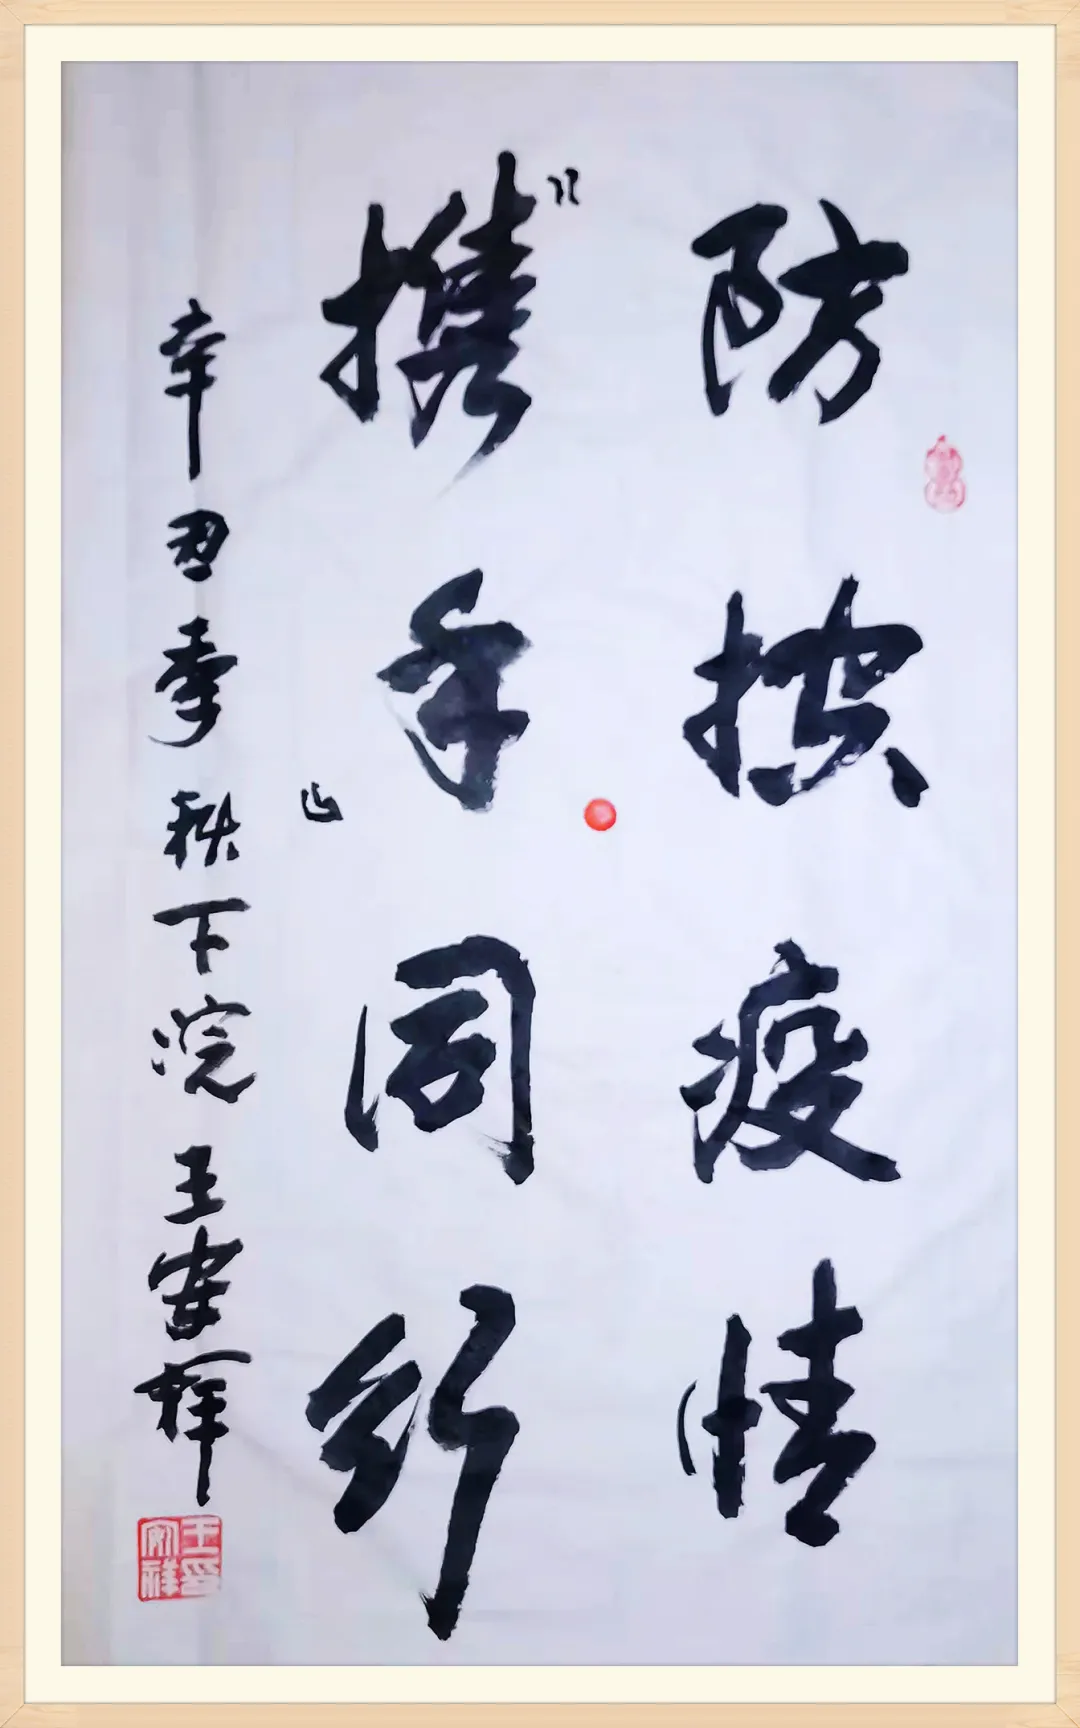 防控疫情
携手同行
辛丑季秋下浣王安祥
王印安祥